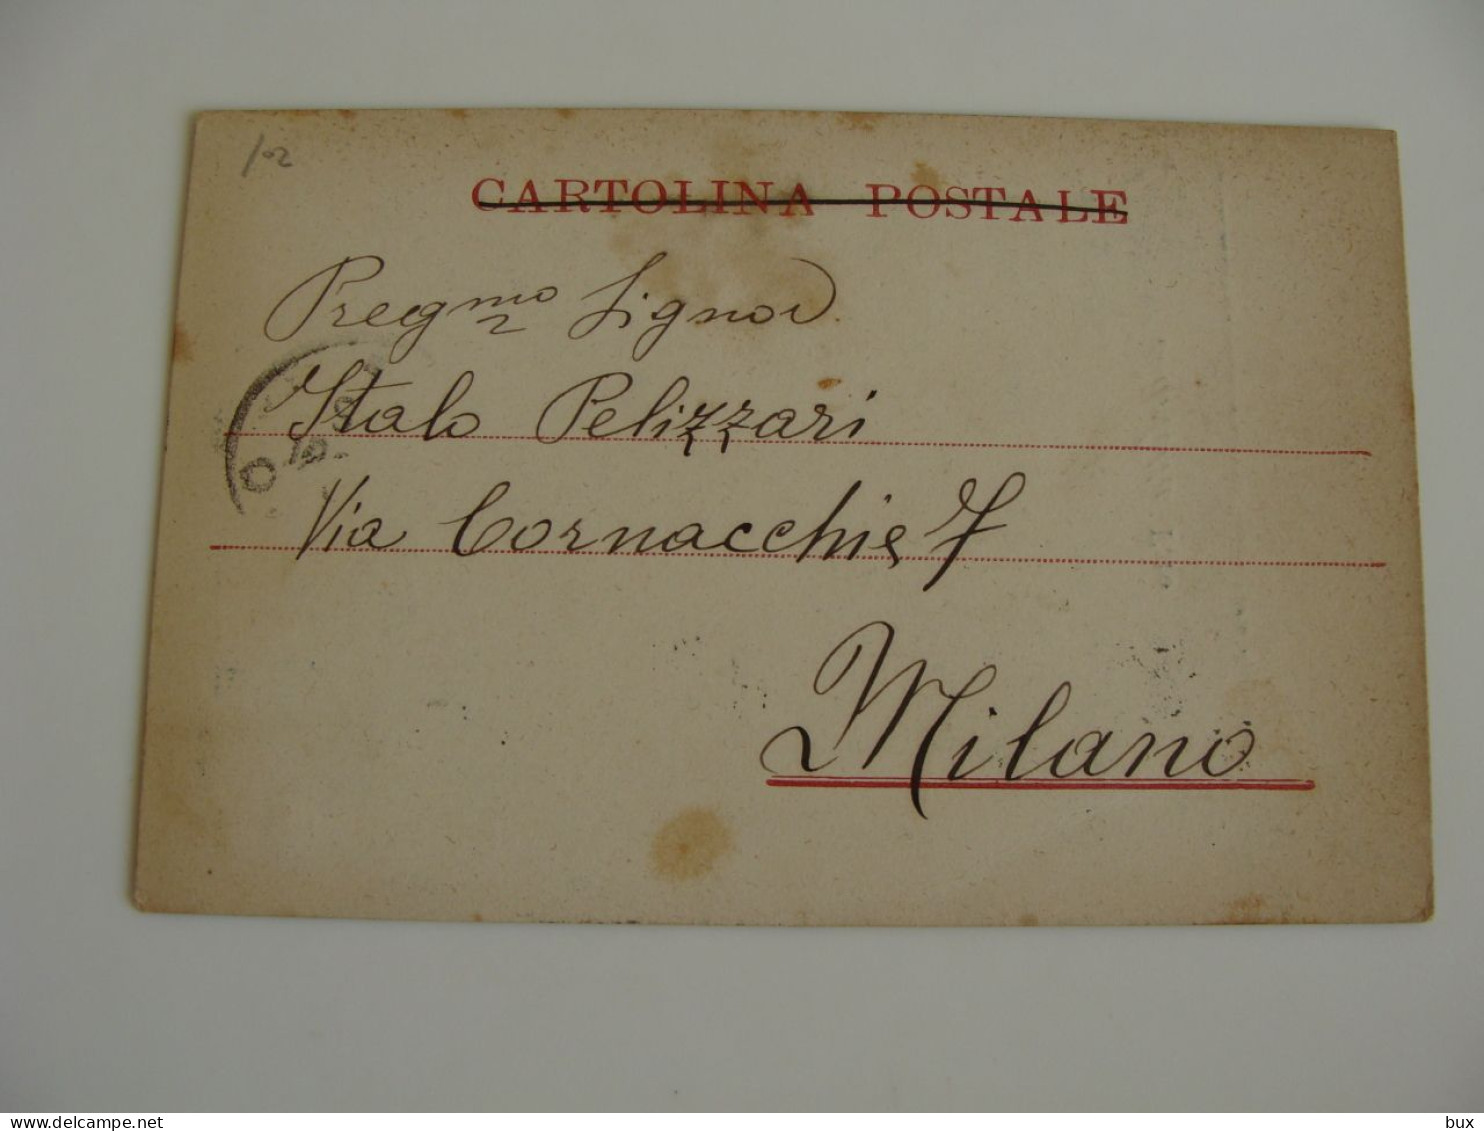 /02
CARTOLINA POSTALE
Pregmo Signor
Italo Pelizzari
Via Cornacchie 7
Milano
bux